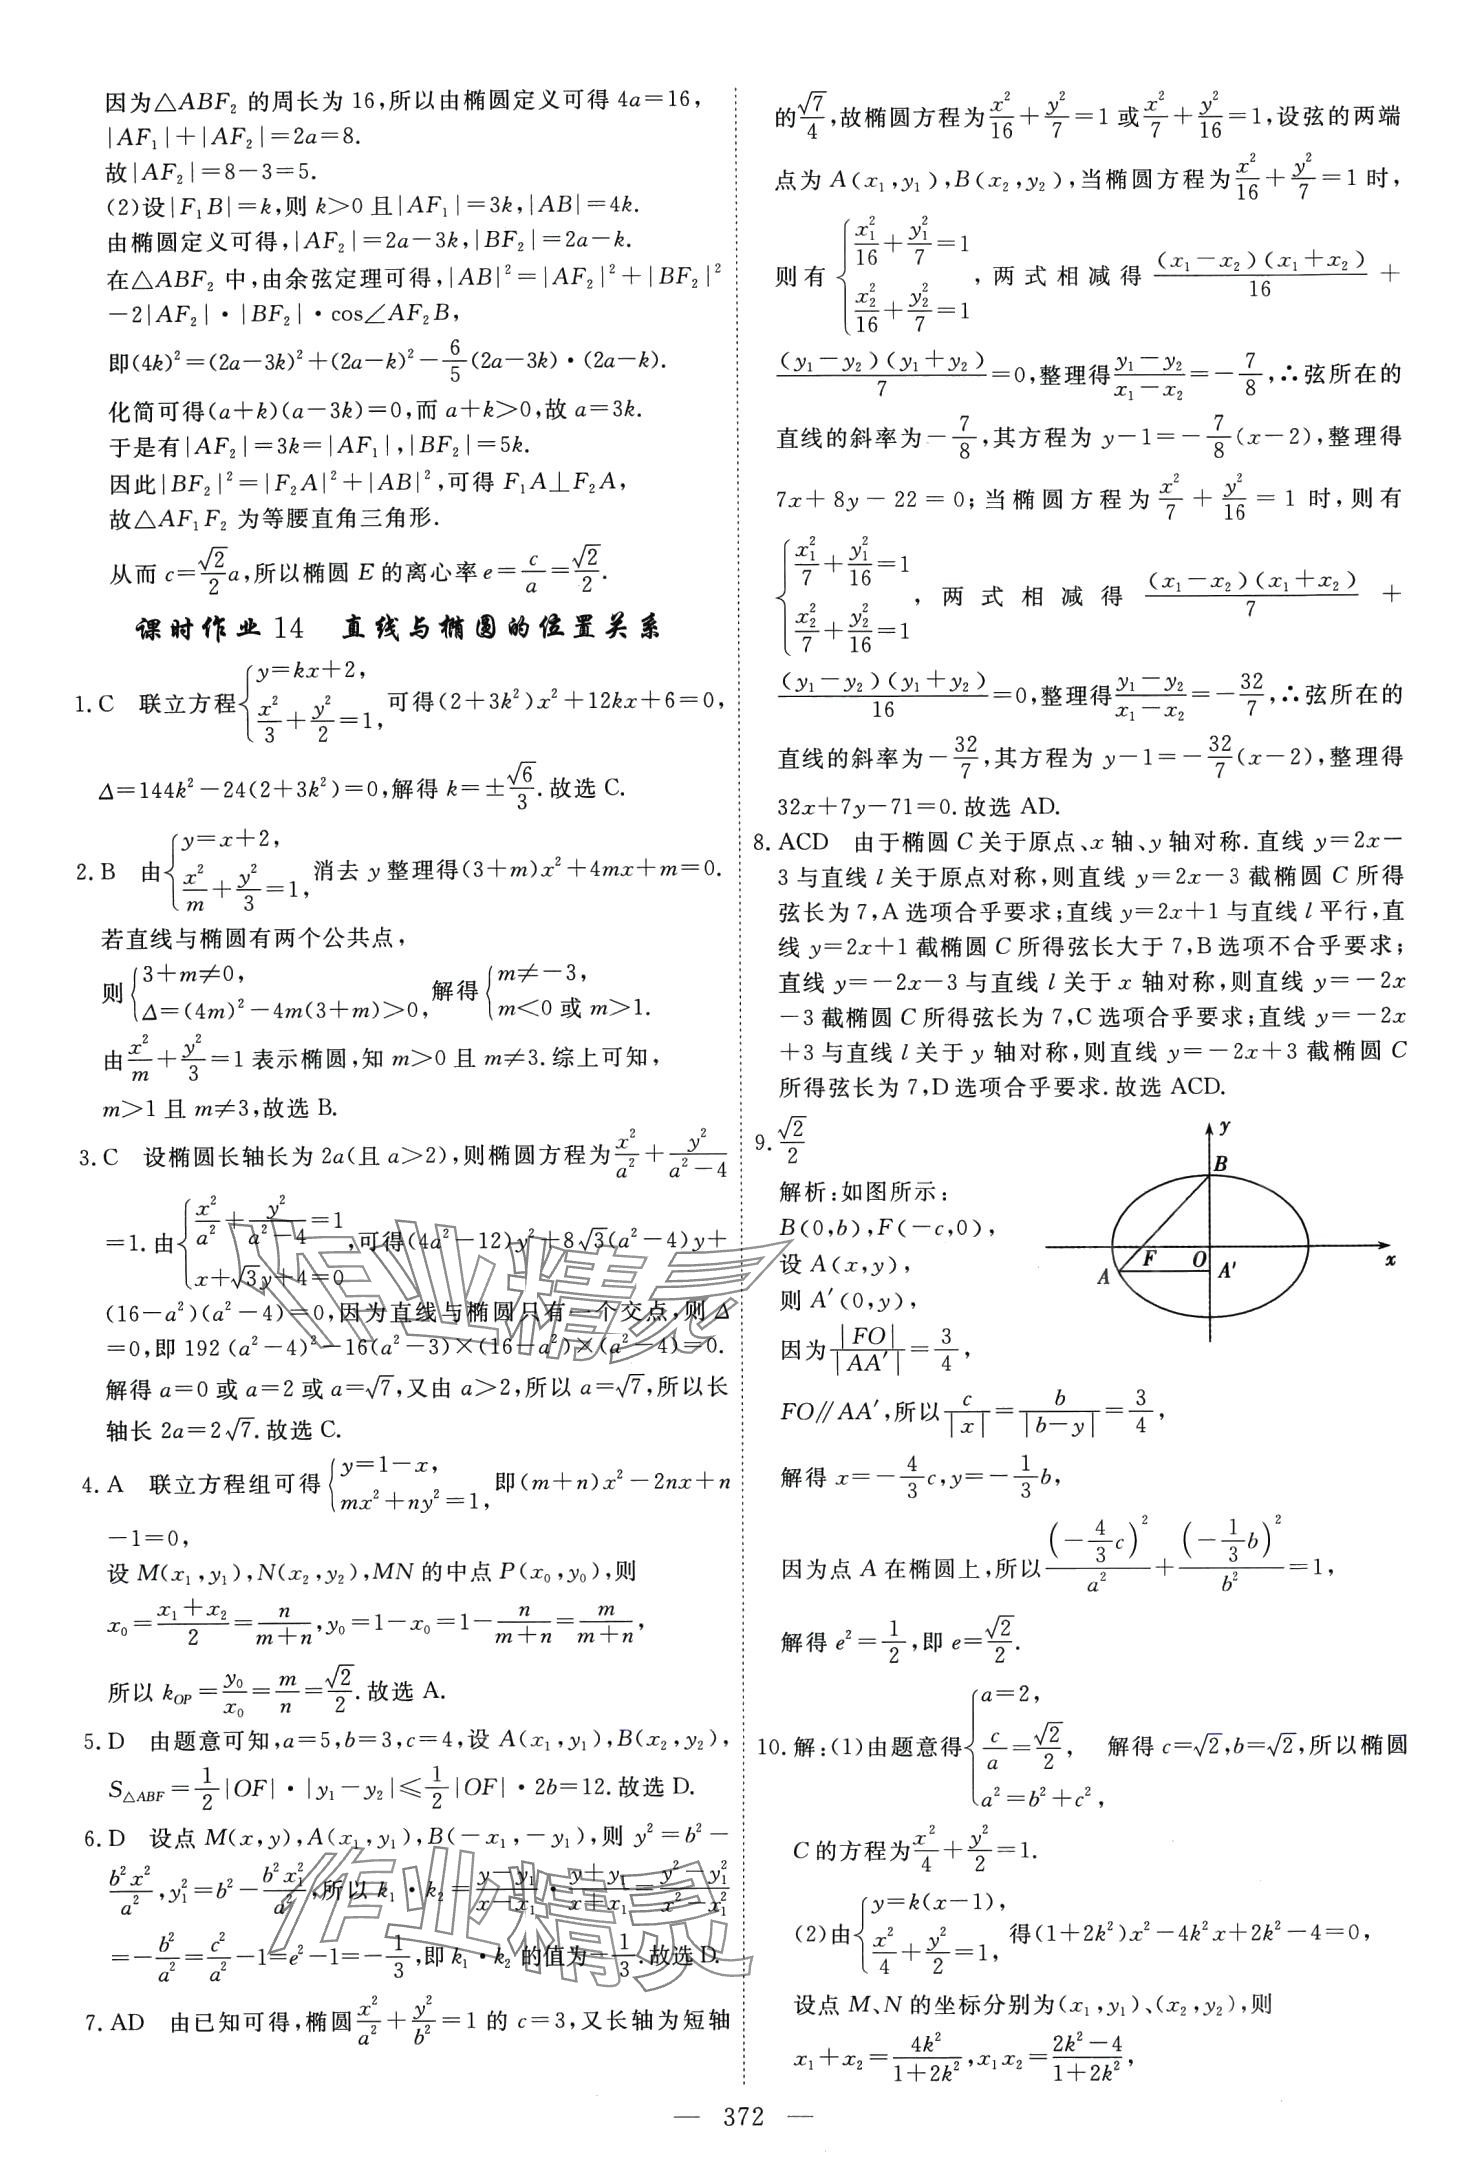 因为△ABF₂ 的周长为 16,所以由椭圆定义可得 4a=16,
|AF₁|+|AF₂|=2a=8.
故|AF₂|=8-3=5.
(2)设|F₁B|=k,则 k>0 且|AF₁|=3k,|AB|=4k.
由椭圆定义可得,|AF₂|=2a-3k,|BF₂|=2a-k.
在△ABF₂ 中,由余弦定理可得,|AB|²=|AF₂|²+|BF₂|²
-2|AF₂|·|BF₂|·cos∠AF₂B,
即(4k)²=(2a-3k)²+(2a-k)²-6/5(2a-3k)·(2a-k).
化简可得(a+k)(a-3k)=0,而 a+k>0,故 a=3k.
于是有|AF₂|=3k=|AF₁|,|BF₂|=5k.
因此|BF₂|²=|F₂A|²+|AB|²,可得 F₁A⊥F₂A,
故△AF₁F₂ 为等腰直角三角形.
从而 c=√2/2 a,所以椭圆 E 的离心率 e=c/a=√2/2.
课时作业 14 直线与椭圆的位置关系
1. C 联立方程{y=kx+2, x²/3+y²/2=1, 可得(2+3k²)x²+12kx+6=0,
Δ=144k²-24(2+3k²)=0,解得 k=±√6/3.故选 C.
2. B 由{y=x+2, x²/m+y²/3=1, 消去 y 整理得(3+m)x²+4mx+m=0.
若直线与椭圆有两个公共点,
则{3+m≠0, Δ=(4m)²-4m(3+m)>0, 解得{m≠-3, m<0 或 m>1.
由x²/m+y²/3=1 表示椭圆,知 m>0 且 m≠3.综上可知,
m>1 且 m≠3,故选 B.
3. C 设椭圆长轴长为 2a(且 a>2),则椭圆方程为x²/a²+y²/(a²-4)
=1.由{x²/a²+y²/(a²-4)=1 x+√3y+4=0 ,可得(4a²-12)y²+8√3(a²-4)y+
(16-a²)(a²-4)=0,因为直线与椭圆只有一个交点,则 Δ
=0,即 192(a²-4)²-16(a²-3)×(16-a²)×(a²-4)=0.
解得 a=0 或 a=2 或 a=√7,又由 a>2,所以 a=√7,所以长
轴长 2a=2√7.故选 C.
4. A 联立方程组可得{y=1-x, mx²+ny²=1, 即(m+n)x²-2nx+n
-1=0,
设 M(x₁,y₁),N(x₂,y₂),MN 的中点 P(x₀,y₀),则
x₀=(x₁+x₂)/2=n/(m+n),y₀=1-x₀=1-n/(m+n)=m/(m+n),
所以 k_OP=y₀/x₀=m/n=√2/2.故选 A.
5. D 由题意可知,a=5,b=3,c=4,设 A(x₁,y₁),B(x₂,y₂),
S△ABF=1/2|OF|·|y₁-y₂|≤1/2|OF|·2b=12.故选 D.
6. D 设点 M(x,y),A(x₁,y₁),B(-x₁,-y₁),则 y²=b²-
b²x²/a²,y₁²=b²-b²x₁²/a²,所以 k₁·k₂=(y-y₁)/(x-x₁)·(y+y₁)/(x+x₁)=(y²-y₁²)/(x²-x₁²)
=-b²/a²=c²/a²-1=e²-1=-1/3,即 k₁·k₂ 的值为-1/3.故选 D.
7. AD 由已知可得,椭圆x²/a²+y²/b²=1 的 c=3,又长轴为短轴
的√7/4,故椭圆方程为x²/16+y²/7=1 或x²/7+y²/16=1,设弦的两端
点为 A(x₁,y₁),B(x₂,y₂),当椭圆方程为x²/16+y²/7=1 时,
则有{x₁²/16+y₁²/7=1 x₂²/16+y₂²/7=1 ,两式相减得(x₁-x₂)(x₁+x₂)/16+
(y₁-y₂)(y₁+y₂)/7=0,整理得(y₁-y₂)/(x₁-x₂)=-7/8,∴弦所在的
直线的斜率为-7/8,其方程为 y-1=-7/8(x-2),整理得
7x+8y-22=0;当椭圆方程为x²/7+y²/16=1 时,则有
{x₁²/7+y₁²/16=1 x₂²/7+y₂²/16=1 ,两式相减得(x₁-x₂)(x₁+x₂)/7+
(y₁-y₂)(y₁+y₂)/16=0,整理得(y₁-y₂)/(x₁-x₂)=-32/7,∴弦所在的
直线的斜率为-32/7,其方程为 y-1=-32/7(x-2),整理得
32x+7y-71=0.故选 AD.
8. ACD 由于椭圆 C 关于原点、x 轴、y 轴对称.直线 y=2x-
3 与直线 l 关于原点对称,则直线 y=2x-3 截椭圆 C 所得
弦长为 7,A 选项合乎要求;直线 y=2x+1 与直线 l 平行,直
线 y=2x+1 截椭圆 C 所得弦长大于 7,B 选项不合乎要求;
直线 y=-2x-3 与直线 l 关于 x 轴对称,则直线 y=-2x
-3 截椭圆 C 所得弦长为 7,C 选项合乎要求;直线 y=-2x
+3 与直线 l 关于 y 轴对称,则直线 y=-2x+3 截椭圆 C
所得弦长为 7,D 选项合乎要求.故选 ACD.
9. √2/2
解析:如图所示:
B(0,b),F(-c,0),
设 A(x,y),
则 A′(0,y),
因为|FO|/|AA′|=3/4,
y
B
F O
x
A A′
FO∥AA′,所以c/|x|=b/|b-y|=3/4,
解得 x=-4/3c,y=-1/3b,
因为点 A 在椭圆上,所以(-4/3c)²/a²+(-1/3b)²/b²=1,
解得 e²=1/2,即 e=√2/2.
10. 解:(1)由题意得{a=2, c/a=√2/2, a²=b²+c², 解得 c=√2,b=√2,所以椭圆
C 的方程为x²/4+y²/2=1.
(2)由{y=k(x-1), x²/4+y²/2=1, 得(1+2k²)x²-4k²x+2k²-4=0,
设点 M、N 的坐标分别为(x₁,y₁)、(x₂,y₂),则
x₁+x₂=4k²/(1+2k²),x₁x₂=(2k²-4)/(1+2k²),
— 372 —
作业精灵
作业精灵